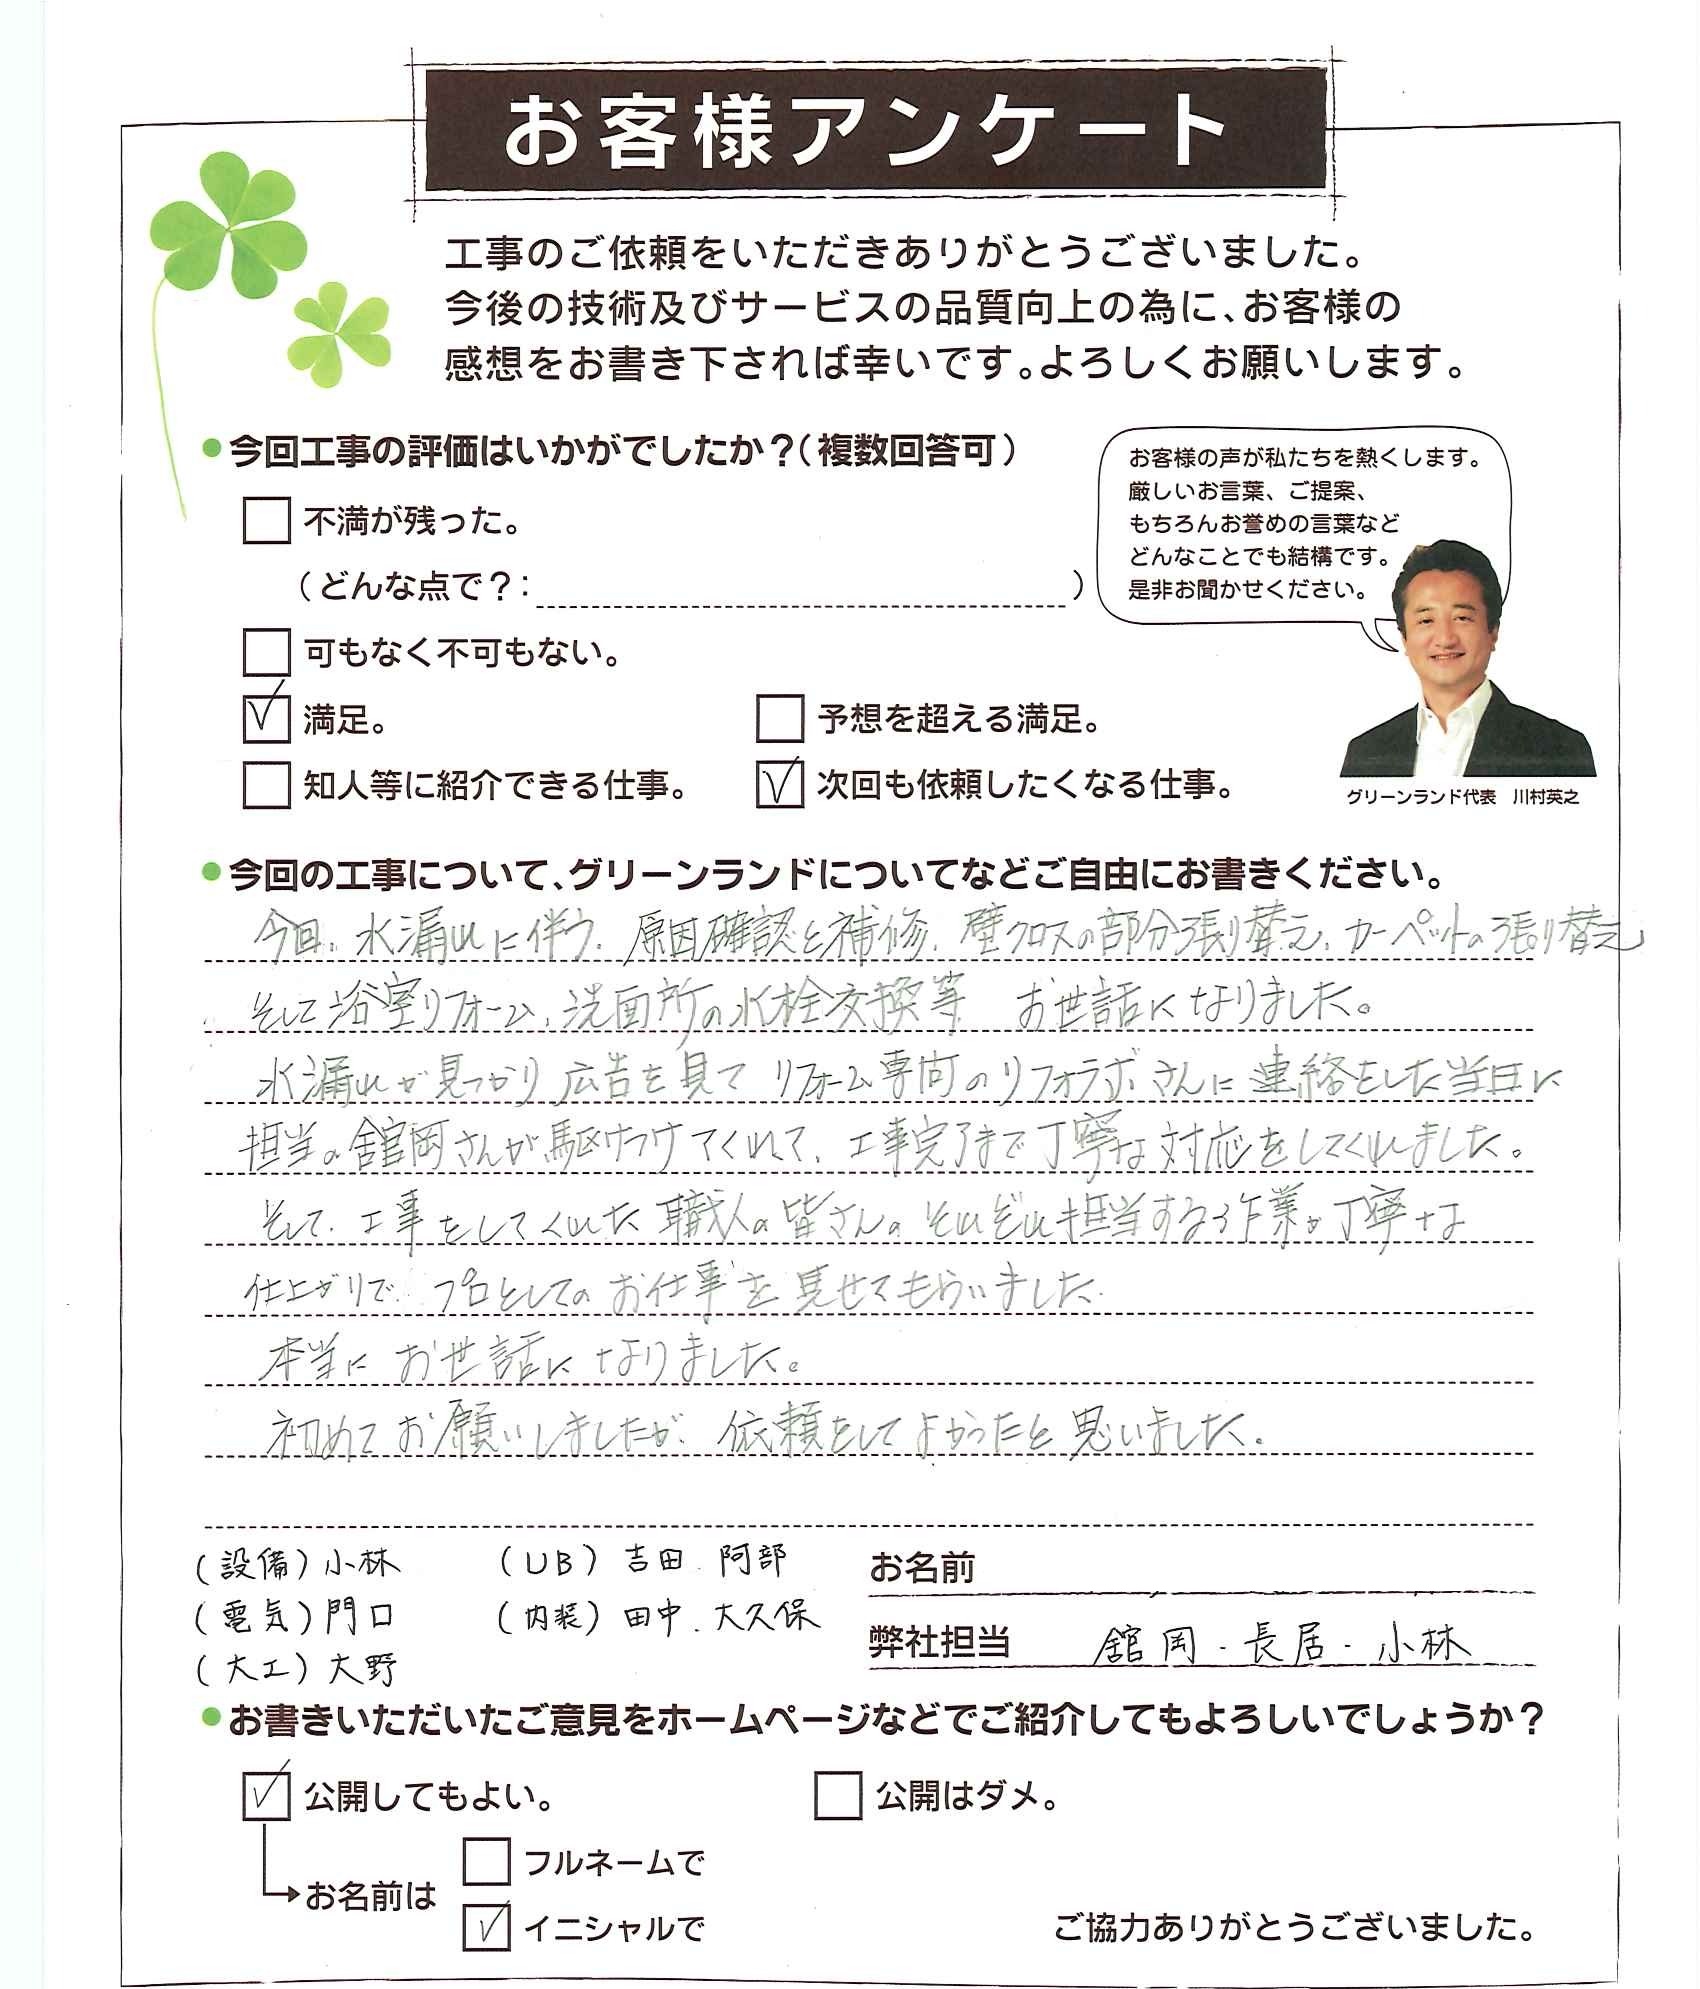 お客様アンケート
工事のご依頼をいただきありがとうございました。
今後の技術及びサービスの品質向上の為に、お客様の
感想をお書き下されば幸いです。よろしくお願いします。
●今回工事の評価はいかがでしたか?(複数回答可)
お客様の声が私たちを熱くします。
厳しいお言葉、ご提案、
もちろんお誉めの言葉など
どんなことでも結構です。
是非お聞かせください。
不満が残った。
(どんな点で?: )
可もなく不可もない。
満足。
予想を超える満足。
知人等に紹介できる仕事。
次回も依頼したくなる仕事。
グリーンランド代表 川村英之
●今回の工事について、グリーンランドについてなどご自由にお書きください。
今回、水漏れに伴う、原因確認と補修、壁クロスの部分張り替え、カーペットの張り替え
そして浴室リフォーム、洗面所の水栓交換等 お世話になりました。
水漏れが見つかり広告を見てリフォーム専門のリフォラボさんに連絡をした当日に
担当の舘岡さんが駆けつけてくれて、工事完了まで丁寧な対応をしてくれました。
そして、工事をしてくれた職人の皆さんのそれぞれ担当する作業が丁寧な
仕上がりで、プロとしてのお仕事を見せてもらいました。
本当にお世話になりました。
初めてお願いしましたが、依頼をしてよかったと思いました。
(設備)小林 (UB)吉田.阿部
(電気)門口 (内装)田中.大久保
(大工)大野
お名前
弊社担当 舘岡・長居・小林
●お書きいただいたご意見をホームページなどでご紹介してもよろしいでしょうか?
公開してもよい。
公開はダメ。
お名前は
フルネームで
イニシャルで
ご協力ありがとうございました。